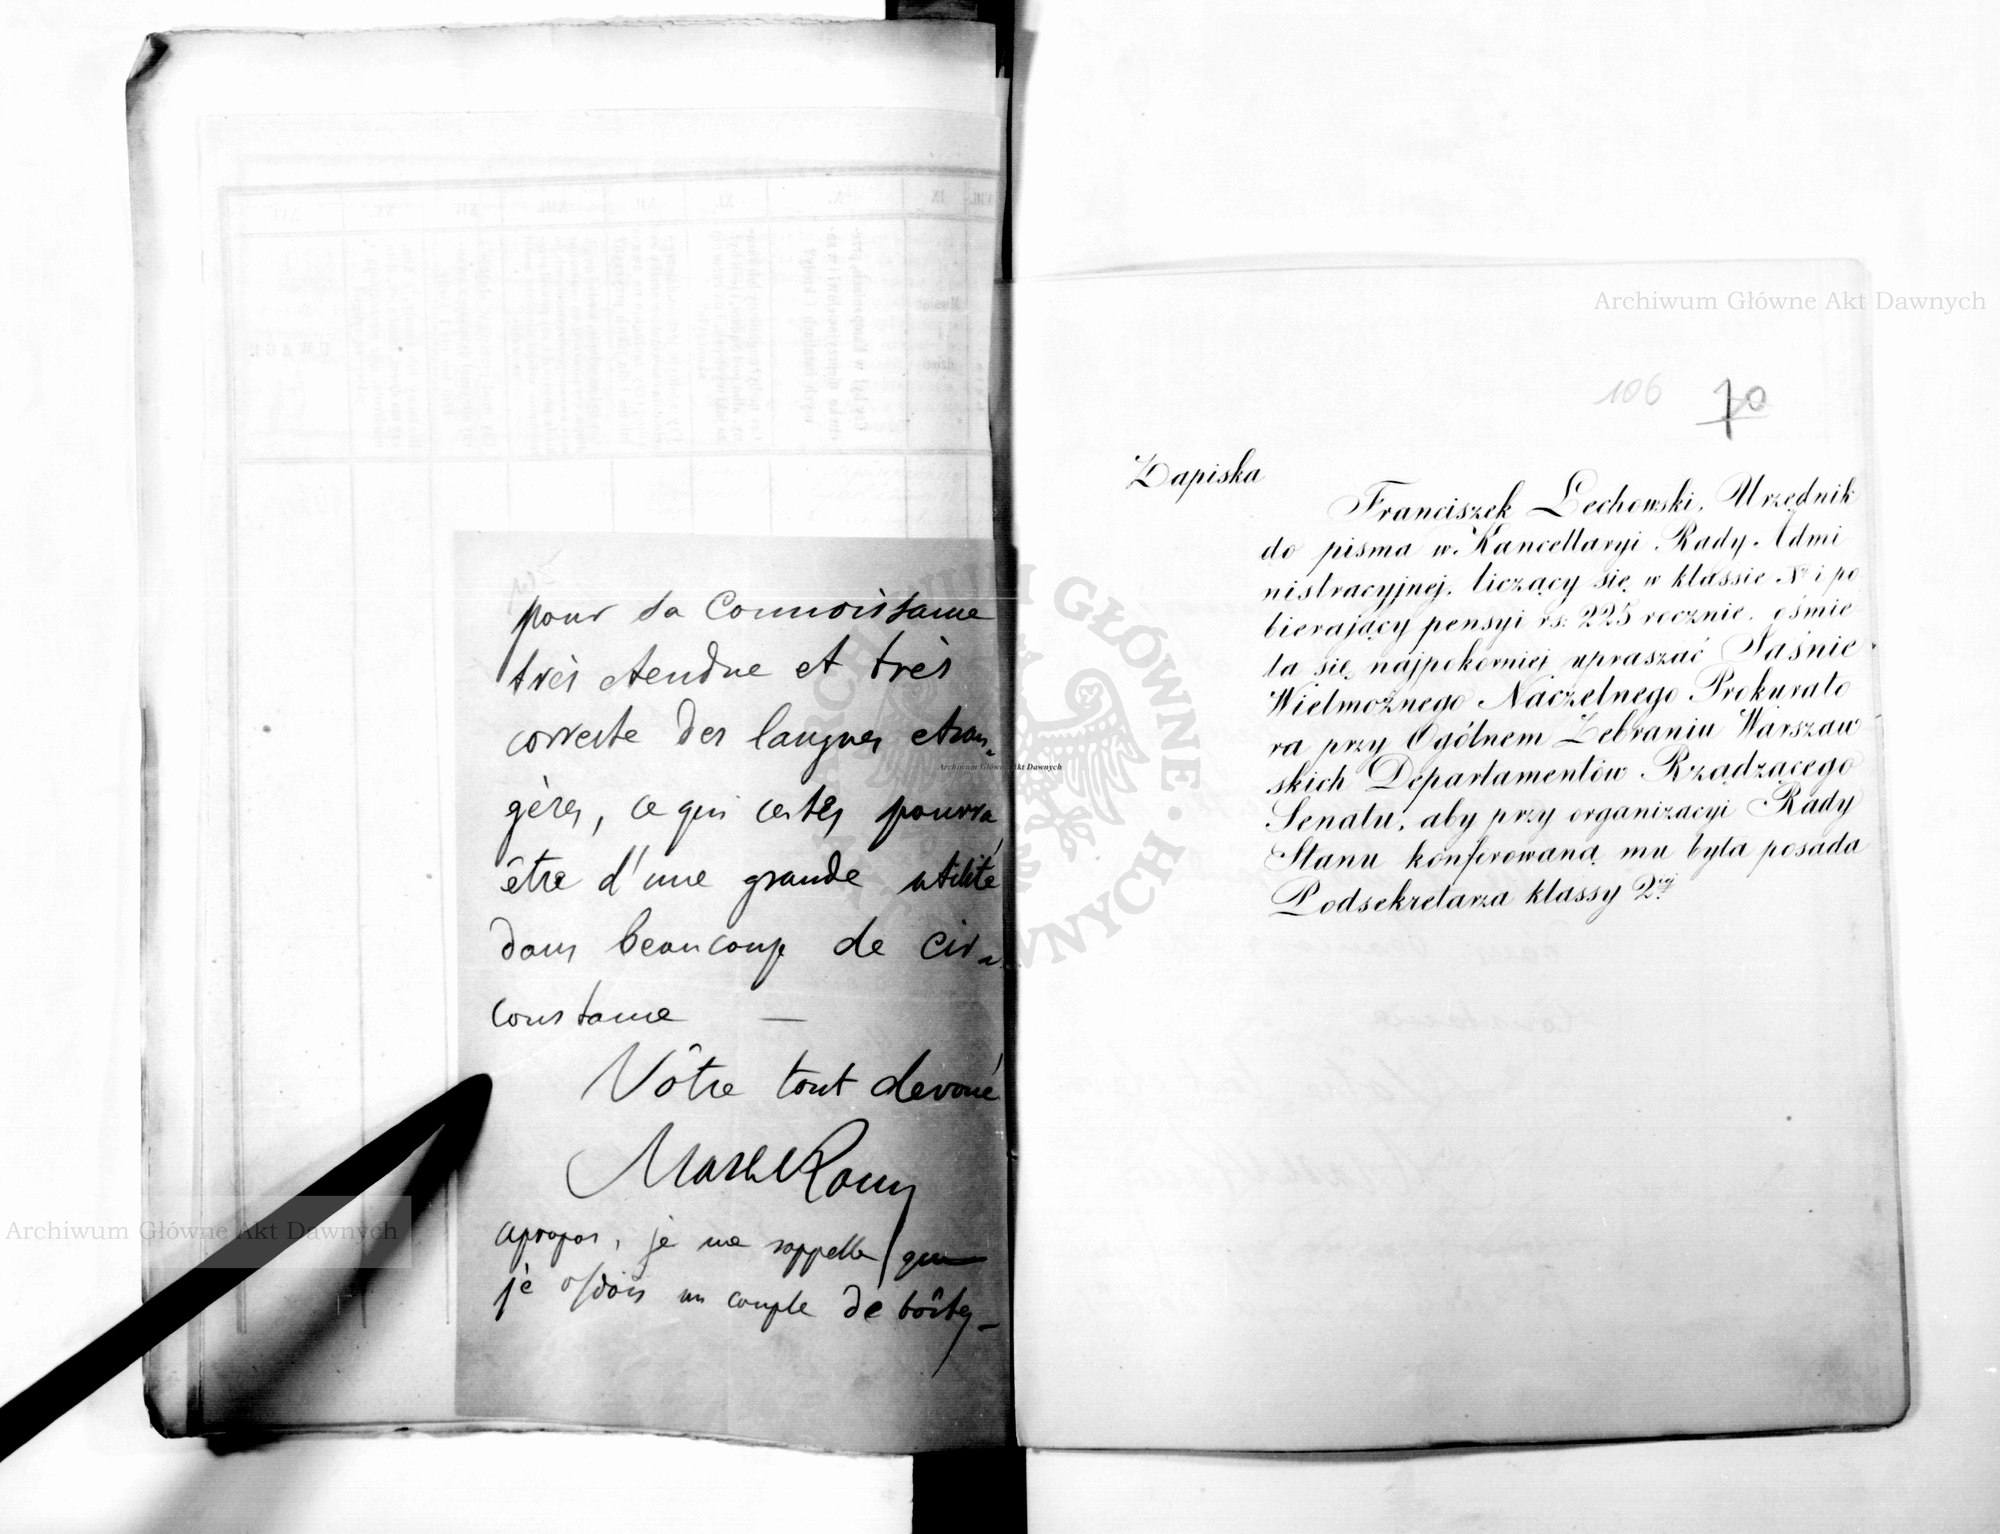 pour sa connoissance
très etendue et très
correcte des langues etran-
gères, ce qui certes pourra
être d'une grande utilité
dans beaucoup de cir-
constance —
Vôtre tout devoué
apropos, je me rappelle que
je un couple de boîtes -
106 70
Zapiska
Franciszek Lechowski, Urzędnik
do pisma w Kancellaryi Rady Admi
nistracyjnej, liczący się w klassie i po
bierający pensyi rs: 225 rocznie, ośmie
la się najpokorniej upraszać Jaśnie
Wielmożnego Naczelnego Prokurato
ra przy Ogólnem Zebraniu Warszaw
skich Departamentów Rządzącego
Senatu, aby przy organizacyi Rady
Stanu konferowaną mu była posada
Podsekretarza klassy 2ej
Archiwum Główne Akt Dawnych
Archiwum Główne Akt Dawnych
Archiwum Główne Akt Dawnych
ARCHIWUM GŁÓWNE AKT DAWNYCH